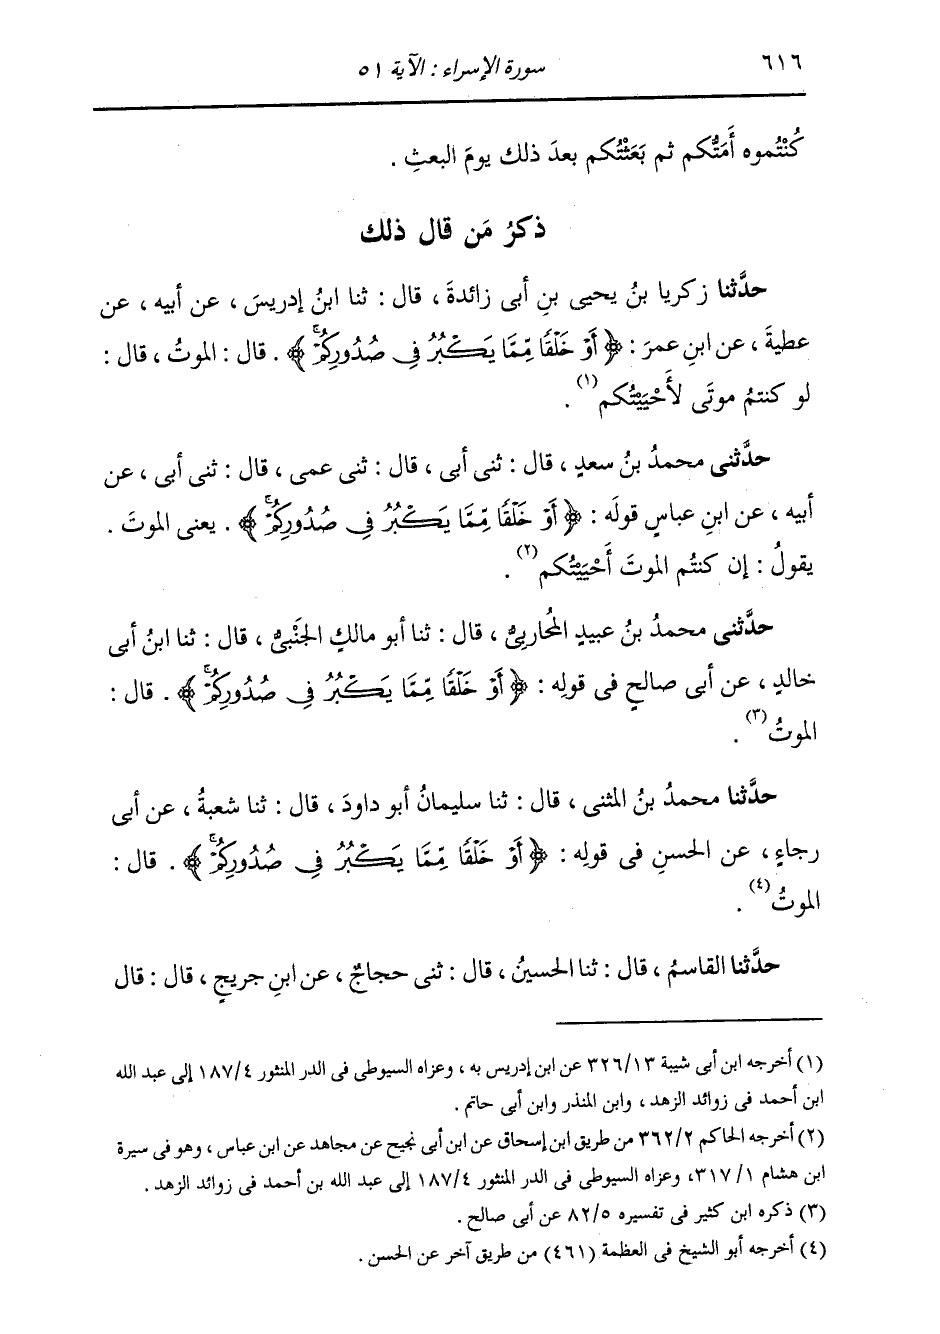 ٦١٦
سورة الإسراء : الآية ٥١
كُنْتُموه أَمَتُّكم ثم بَعَثْتُكم بعدَ ذلك يومَ البعثِ .
ذكرُ مَن قال ذلك
حدَّثنا زكريا بنُ يحيى بنِ أبى زائدةَ ، قال : ثنا ابنُ إدريسَ ، عن أبيه ، عن
عطيةَ ، عن ابنِ عمرَ : ﴿ أَوْ خَلْقًا مِّمَّا يَكْبُرُ فِى صُدُورِكُمْۚ ﴾ . قال : الموتُ ، قال :
لو كنتمُ موتَى لأَحْيَيْتُكم (١) .
حدَّثنى محمدُ بنُ سعدٍ ، قال : ثنى أبى ، قال : ثنى عمى ، قال : ثنى أبى ، عن
أبيه ، عن ابنِ عباسٍ قولَه : ﴿ أَوْ خَلْقًا مِّمَّا يَكْبُرُ فِى صُدُورِكُمْۚ ﴾ . يعنى الموتَ .
يقولُ : إن كنتُم الموتَ أَحْيَيْتُكم (٢) .
حدَّثنى محمدُ بنُ عبيدٍ المُحاربىُّ ، قال : ثنا أبو مالكٍ الجَنْبىُّ ، قال : ثنا ابنُ أبى
خالدٍ ، عن أبى صالحٍ فى قولِه : ﴿ أَوْ خَلْقًا مِّمَّا يَكْبُرُ فِى صُدُورِكُمْۚ ﴾ . قال :
الموتُ (٣) .
حدَّثنا محمدُ بنُ المثنى ، قال : ثنا سليمانُ أبو داودَ ، قال : ثنا شعبةُ ، عن أبى
رجاءٍ ، عن الحسنِ فى قولِه : ﴿ أَوْ خَلْقًا مِّمَّا يَكْبُرُ فِى صُدُورِكُمْۚ ﴾ . قال :
الموتُ (٤) .
حدَّثنا القاسمُ ، قال : ثنا الحسينُ ، قال : ثنى حجاجٌ ، عن ابنِ جريجٍ ، قال : قال
(١) أخرجه ابن أبى شيبة ٣٢٦/١٣ عن ابن إدريس به ، وعزاه السيوطى فى الدر المنثور ١٨٧/٤ إلى عبد الله
ابن أحمد فى زوائد الزهد ، وابن المنذر وابن أبى حاتم .
(٢) أخرجه الحاكم ٣٦٢/٢ من طريق ابن إسحاق عن ابن أبى نجيح عن مجاهد عن ابن عباس ، وهو فى سيرة
ابن هشام ٣١٧/١، وعزاه السيوطى فى الدر المنثور ١٨٧/٤ إلى عبد الله بن أحمد فى زوائد الزهد .
(٣) ذكره ابن كثير فى تفسيره ٨٢/٥ عن أبى صالح .
(٤) أخرجه أبو الشيخ فى العظمة (٤٦١) من طريق آخر عن الحسن .